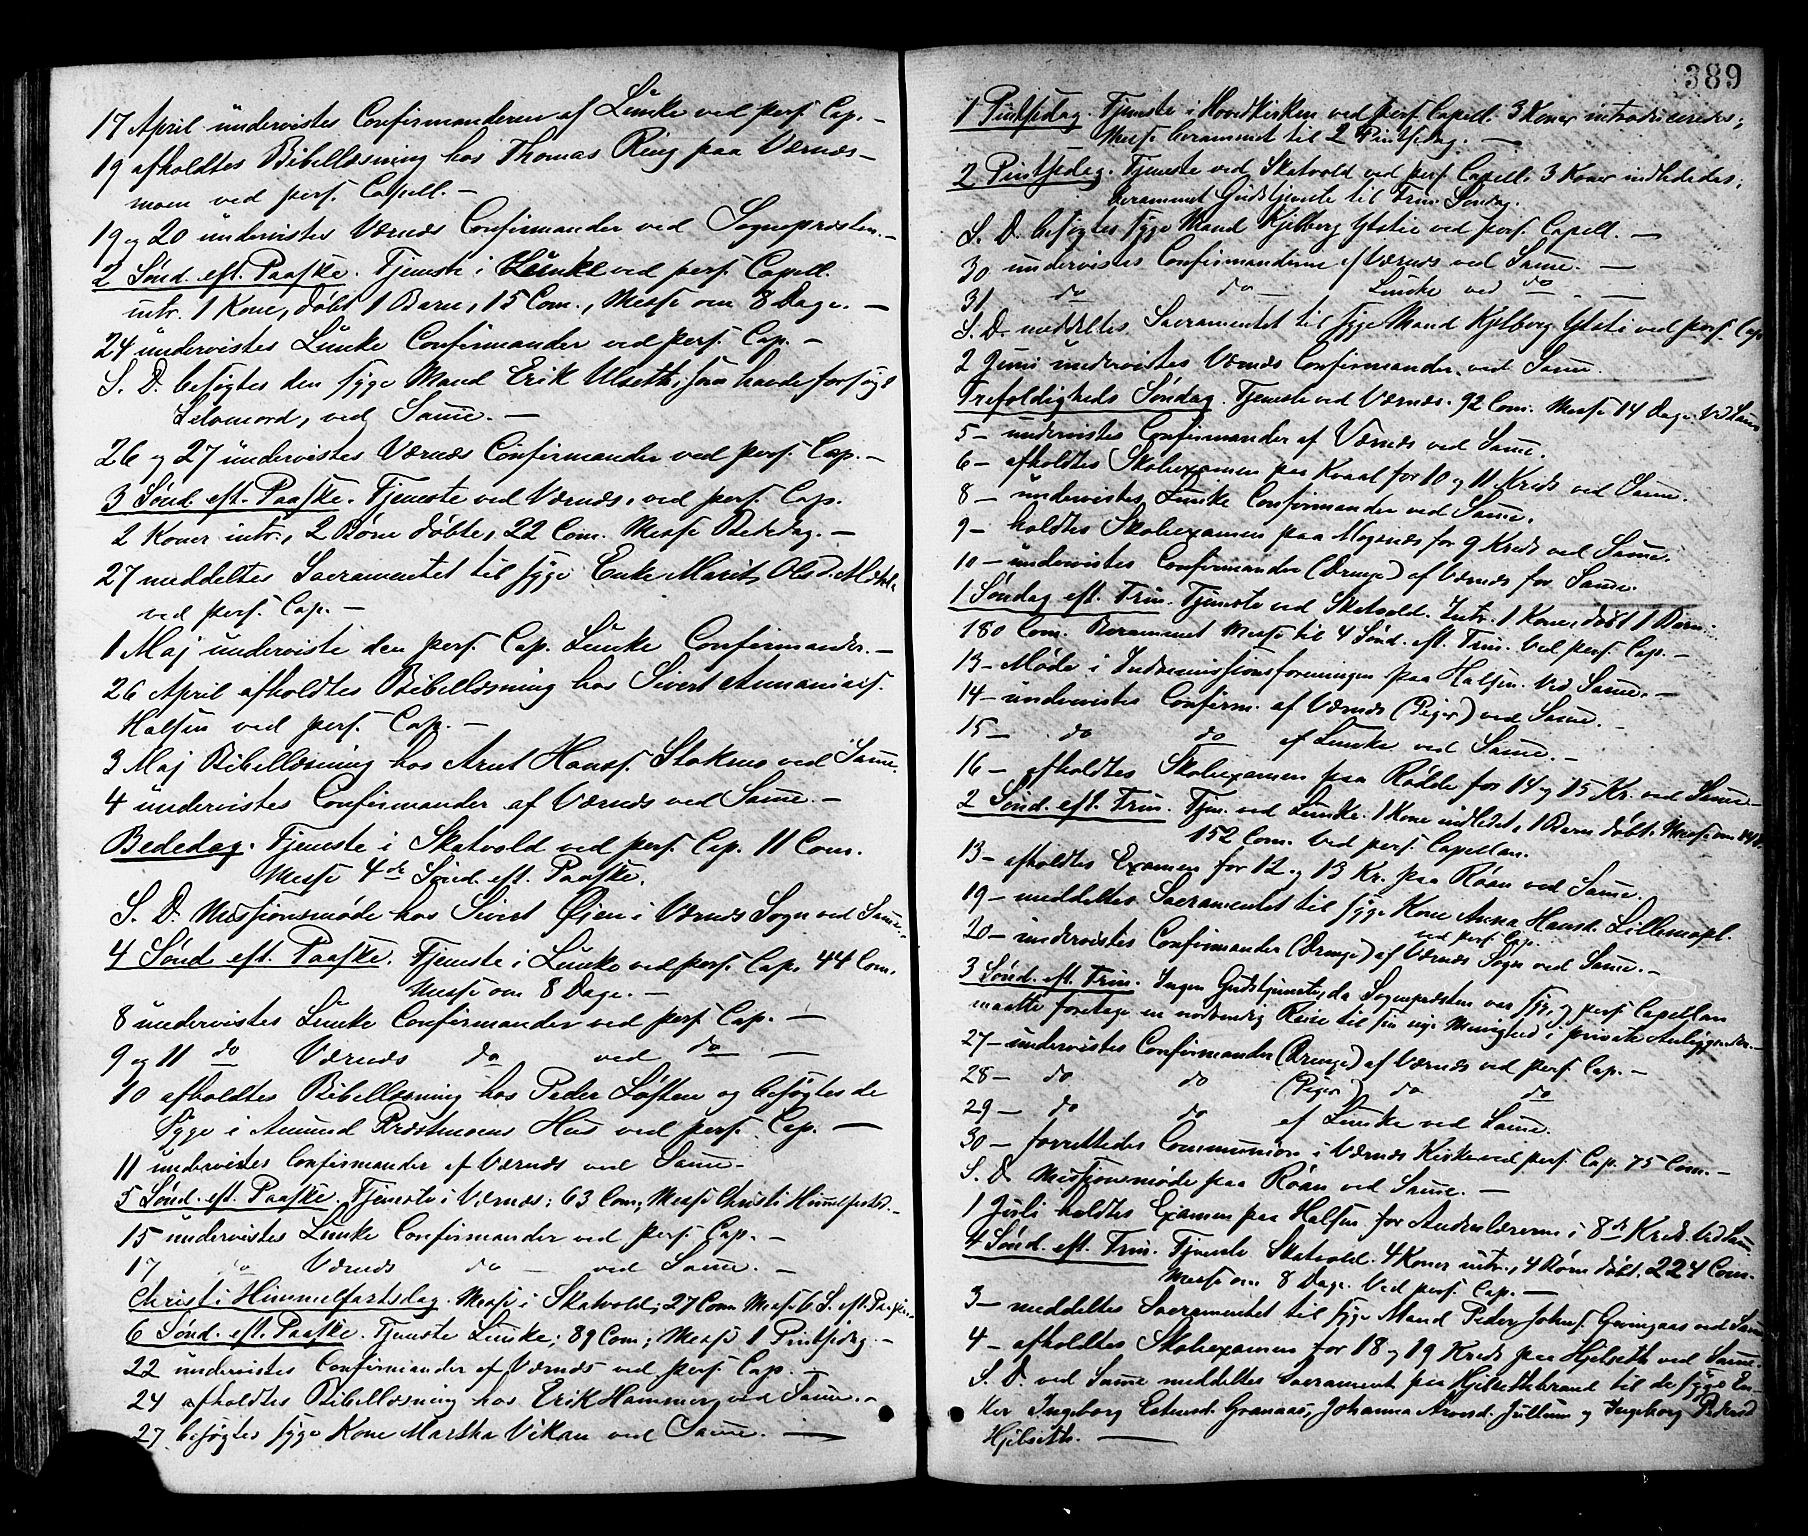 17 April undervistes Confirmanderne af Lunke ved pers. Cap. -
19 afholdtes Bibellæsning hos Thomas Ring paa Værnes-
moen ved pers. Capell. -
19 og 20 undervistes Værnes Confirmander ved Sognepresten. -
2 Sønd. eft. Paaske. Tjeneste i Lunke ved pers. Capell.
intr. 1 Kone, døbt 1 Barn, 15 Com., Messe om 8 Dage. -
24 undervistes Lunke Confirmander ved pers. Cap. -
S. D. besøgtes den syge Mand Erik Ulseth, som havde forsøgt
Selvmord, ved Samme. -
26 og 27 undervistes Værnes Confirmander ved pers. Cap. -
3 Sønd. eft. Paaske. Tjeneste ved Værnes, ved pers. Cap.
2 Koner intr., 2 Børn døbte, 22 Com. Messe Bededag. -
27 meddeltes Sacramentet til syge Enke Marit Olsd.
ved pers. Cap. -
1 Maj underviste den pers. Cap. Lunke Confirmander. -
26 April afholdtes Bibellæsning hos Sivert Annaniass.
Halsen ved pers. Cap. -
3 Maj Bibellæsning hos Arnt Hanss. Stokmo ved Samme.
4 undervistes Confirmander af Værnes ved Samme. -
Bededag. Tjeneste i Skatvold ved pers. Cap. 11 Com.
Messe 4de Sønd. eft. Paaske.
S. D. Missionsmøde hos Sivert Øjen i Værnes Sogn ved Samme.
4 Sønd. eft. Paaske. Tjeneste i Lunke ved pers. Cap. 44 Com.
Messe om 8 Dage. -
8 undervistes Lunke Confirmander ved pers. Cap. -
9 og 11 do Værnes do ved do -
10 afholdtes Bibellæsning hos Peder Løften og besøgtes de
Syge i Amund Præstmoens Hus ved pers. Cap. -
11 undervistes Confirmander af Værnes ved Samme. -
5 Sønd. eft. Paaske. Tjeneste i Værnes; 63 Com; Messe Christi Himmelfartsd. -
15 undervistes Lunke Confirmander ved pers. Cap. -
17 " Værnes do - ved Samme. -
Christi Himmelfartsdag. Messe i Skatvold; 27 Com Messe 6 S. eft. Paaske.
6 Sønd. eft. Paaske. Tjeneste Lunke; 89 Com; Messe 1 Pintsedag. -
22 undervistes Confirmander af Værnes ved pers. Cap. -
24 afholdtes Bibellæsning hos Erik Hammer ved Samme. -
27 besøgtes syge Kone Martha Vikan ved Samme. -
389
1 Pintsedag. Tjeneste i Hovedkirken ved pers. Capell. 3 Koner introduceredes;
Messe berammet til 2 Pintsedag. -
2 Pintsedag. Tjeneste ved Skatvold ved pers. Capell. 3 Koner indlededes;
berammet Gudstjeneste til Trin. Søndag.
S. D. besøgtes syge Mand Kjelberg Ystie ved pers. Capell. -
30 undervistes Confirmanderne af Værnes ved Samme. -
31 do do Lunke ved do -
S. D. meddeltes Sacramentet til syge Mand Kjelberg Ysti ved pers. Cap
2 Juni undervistes Værnes Confirmander ved Samme.
Trefoldigheds Søndag. Tjeneste ved Værnes. 92 Com. Messe 14 Dage. Ved Samme
5 - undervistes Confirmander af Værnes ved Samme.
6 - afholdtes Skolexamen paa Kvaal for 10 og 11 Kreds ved Samme.
8 - undervistes Lunke Confirmander ved Samme.
9 - holdtes Skolexamen paa Mogsnes for 9 Kreds ved Samme.
10 - undervistes Confirmander (Drenge) af Værnes for Samme.
1 Søndag eft. Trin. Tjeneste ved Skatvold. Intr. 1 Kone, døbt 1 Barn
180 Com. Berammet Messe til 4 Sønd. eft. Trin. ved pers. Cap. -
13 - Møde i Indremissionsforeningen paa Halsen. Ved Samme. -
14 - undervistes Confirm. af Værnes (Piger) ved Samme. -
15 - do do af Lunke ved Samme. -
16 - afholdtes Skolexamen paa Rødde for 14 og 15 Kr. ved Samme -
2 Sønd. eft. Trin. Tjen. ved Lunke. 1 Kone indledet, 1 Barn døbt. Messe om 14 D.
152 Com. ved pers. Capellan.
13 - afholdtes Examen for 12 og 13 Kr. paa Røan ved Samme.
19 - meddeltes Sacramentet til syge Kone Anna Hansd. Lillemopl.
ved pers. Cap.
20 - undervistes Confirmander (Drenge) af Værnes Sogn ved Samme. -
3 Sønd. eft. Trin. Ingen Gudstjeneste, da Sognepresten var syg, og pers. Capellan
maatte foretage en nødvendig Reise til sin nye Menighed i private Anliggender. -
27 - undervistes Confirmander (Drenge) af Værnes ved pers. Cap. -
28 - do do (Piger) do do
29 - do do af Lunke ved Samme.
30 - forrettedes Communion i Værnes Kirke ved pers. Cap. 75 Com. -
S. D. Missionsmøde paa Røan ved Samme. -
1 Juli holdtes Examen paa Halsen for Andenlæreren i 8de Kreds. Ved Samme.
4 Sønd. eft. Trin. Tjeneste Skatvold. 4 Koner intr., 4 Børn døbt. 224 Com.
Messe om 8 Dage. Ved pers. Cap. -
3 - meddeltes Sacramentet til syge Mand Peder Johns. Gevingaas ved Samme
4 - afholdtes Skolexamen for 18 og 19 Kreds paa Hjelseth ved Samme.
S. D. ved Samme meddeltes Sacrament paa Hjelsethstrand til de syge En-
ker Ingeborg Estensd. Granaas, Johanna Arnsd. Jullum og Ingeborg Pedersd
Hjelseth. -